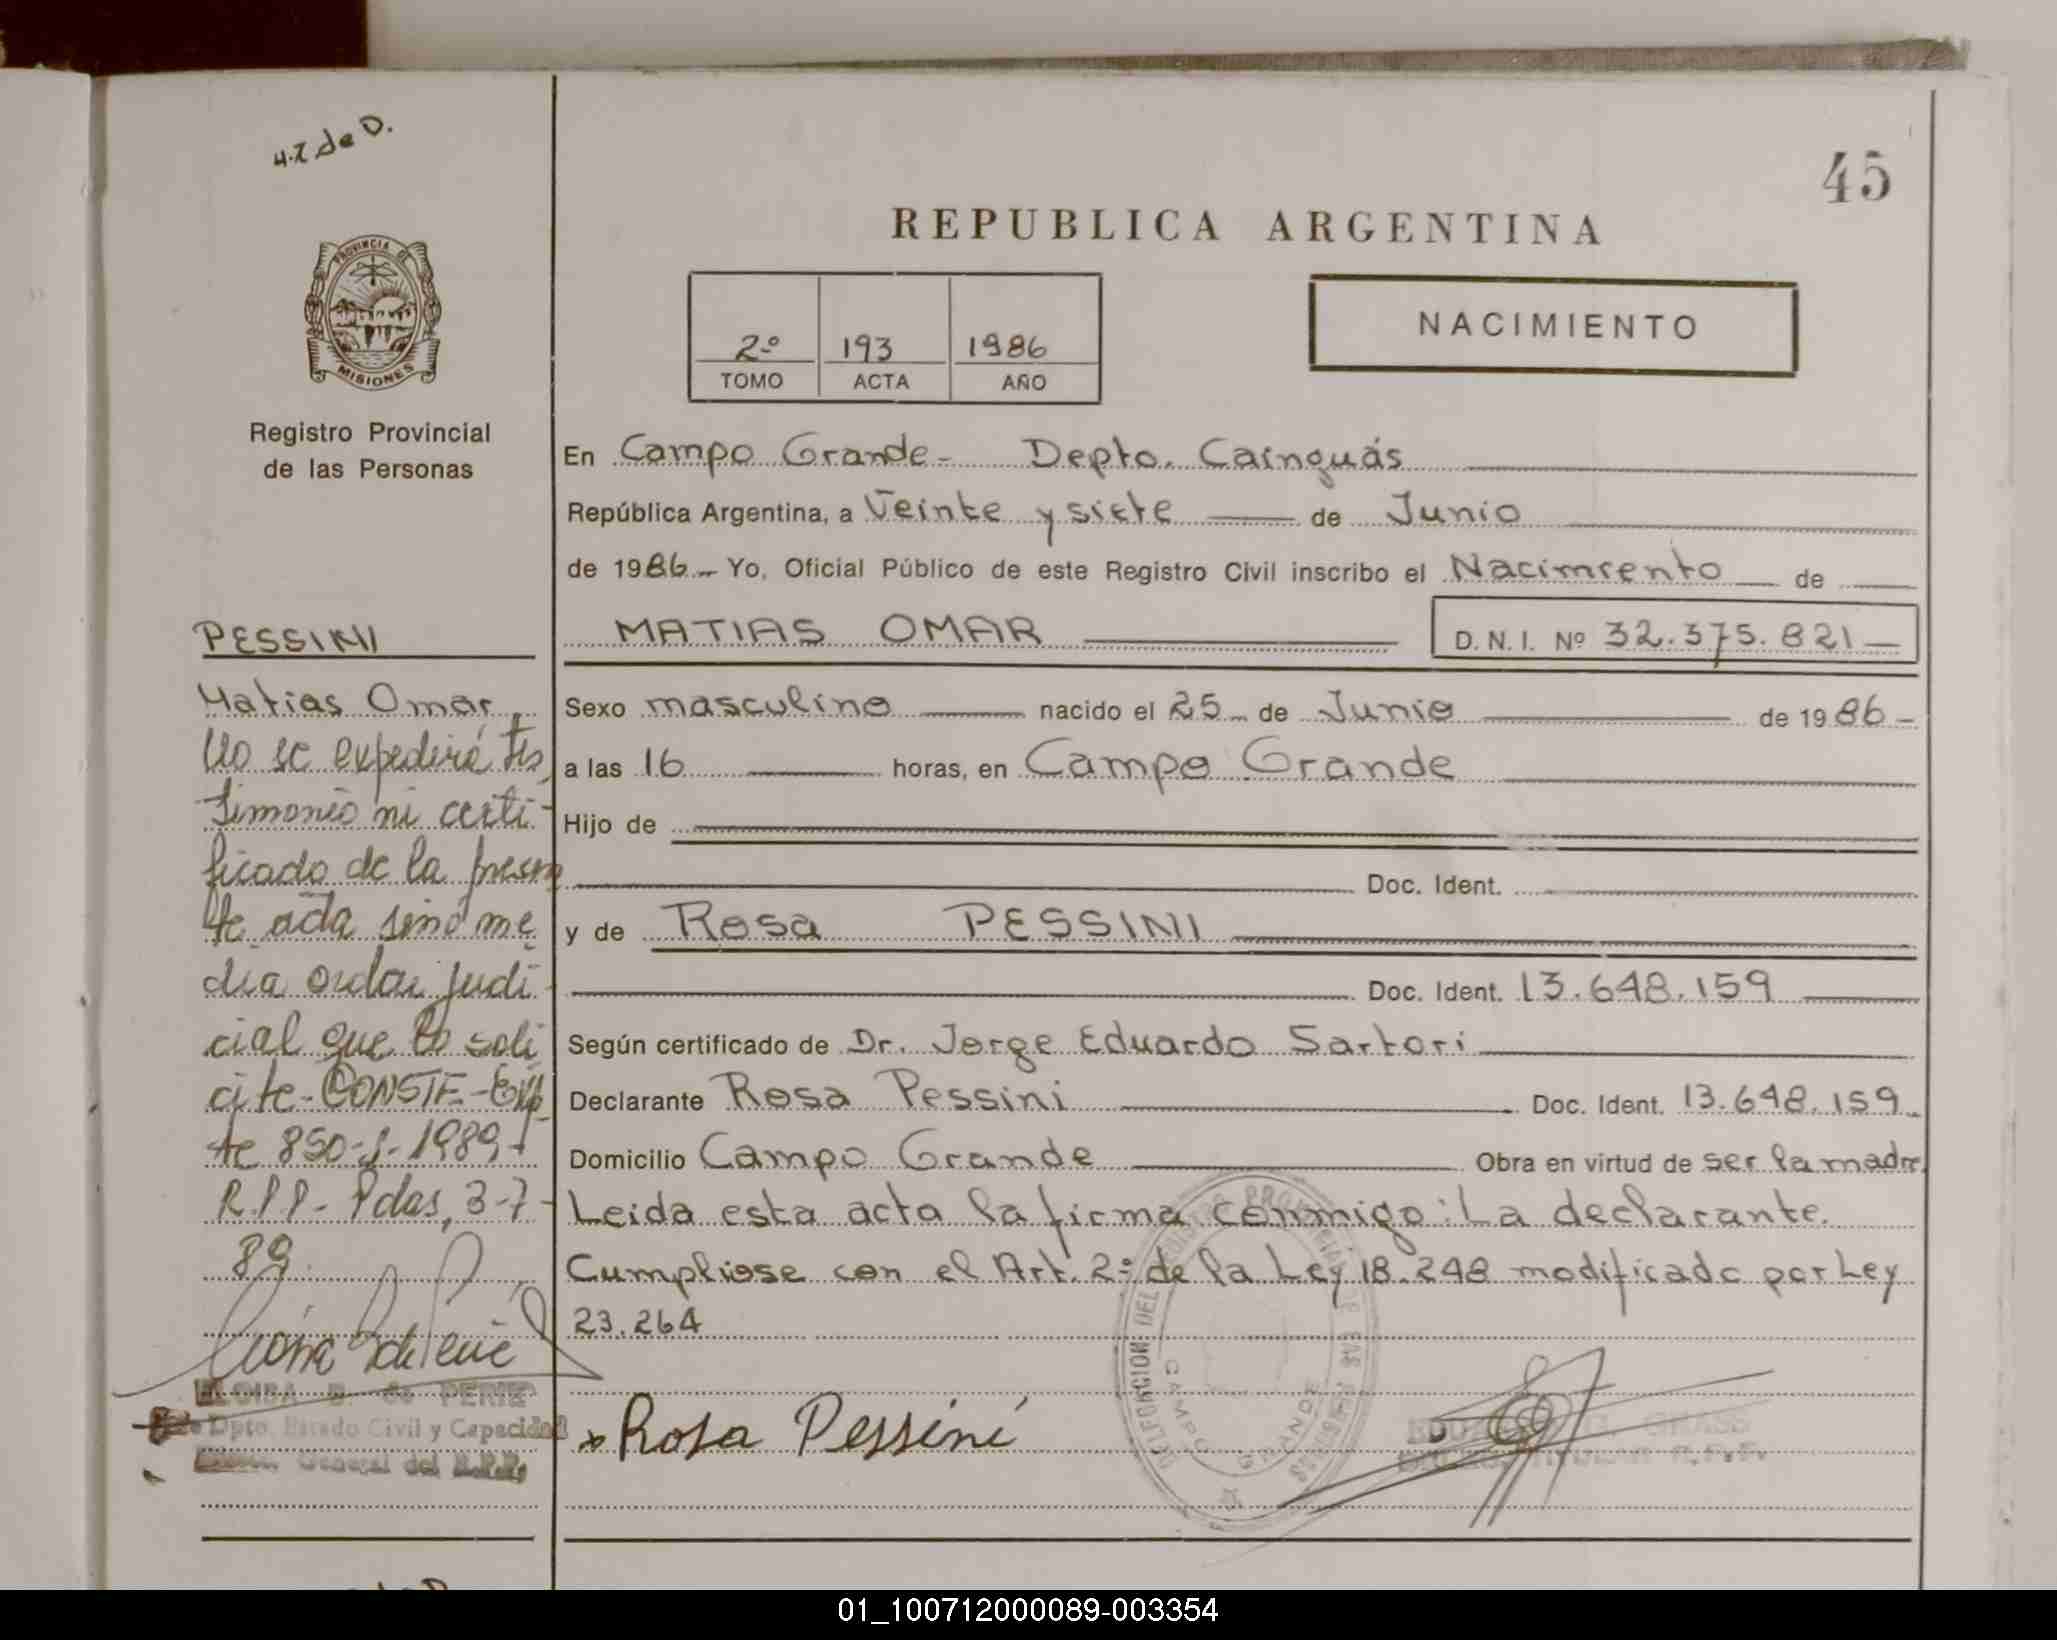 4.7 de D.
45
REPUBLICA ARGENTINA
PROVINCIA DE
MISIONES
2º 193 1986
TOMO ACTA AÑO
NACIMIENTO
Registro Provincial
de las Personas
En Campo Grande - Depto. Cainguás
República Argentina, a Veinte y siete de Junio
de 1986 - Yo, Oficial Público de este Registro Civil inscribo el Nacimiento de
MATIAS OMAR D.N.I. Nº 32.375.821
Sexo masculino nacido el 25 de Junio de 1986 -
a las 16 horas, en Campo Grande
Hijo de
Doc. Ident.
y de Rosa PESSINI
Doc. Ident. 13.648.159
Según certificado de Dr. Jorge Eduardo Sartori
Declarante Rosa Pessini Doc. Ident. 13.648.159
Domicilio Campo Grande Obra en virtud de ser la madre
Leida esta acta la firma conmigo: La declarante.
Cumpliose con el Art. 2º de la Ley 18.248 modificado por Ley
23.264
Rosa Pessini
CAMPO GRANDE
PESSINI
Matias Omar
No se expedirá tes
timonio ni certi-
ficado de la presen
te acta sino me
dia orden judi-
cial que lo soli
cite - CONSTE - Exp
te 850-J-1989 -
R.P.P. - Pdas, 3-7-
89.
ELOISA B. de PERIE
Dpto. Estado Civil y Capacidad
General del R.P.P.
01_100712000089-003354